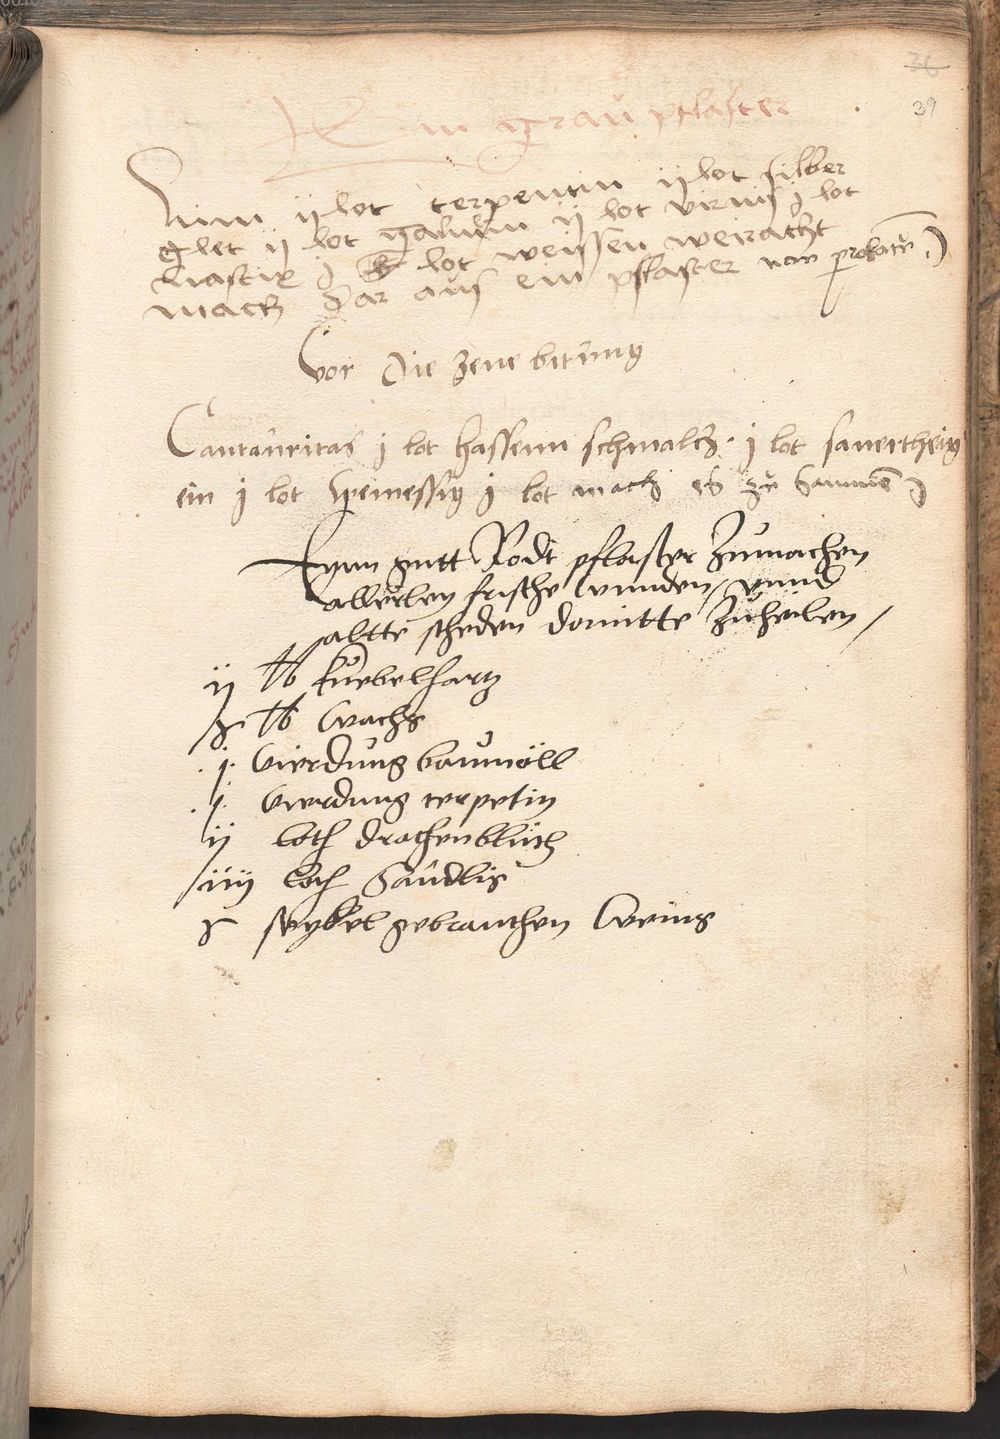 36
39
Ein grau pflaster
Nim ij lot terpentin ij lot silber
glet ij lot galmin ij lot virnis j lot
mastix j lot weissen weiracht
mach dar aus ein pflaster
Vor die zene bitung
Cantauritas j lot hassenn schmaltz j lot sauertheig
ein j lot weinessig j lot mach es zu sammen
Eynn gutt Rodt pflaster zumachen
allerley frische wunden, vnnd
altte scheden domitte zuheilen,
ij lb kuebelhartz
lb wachs
.j. vierdung baumöll
.j. vierdung terpetin
ij loth drachenblutz
iiij loth
seydel gebranthen weins